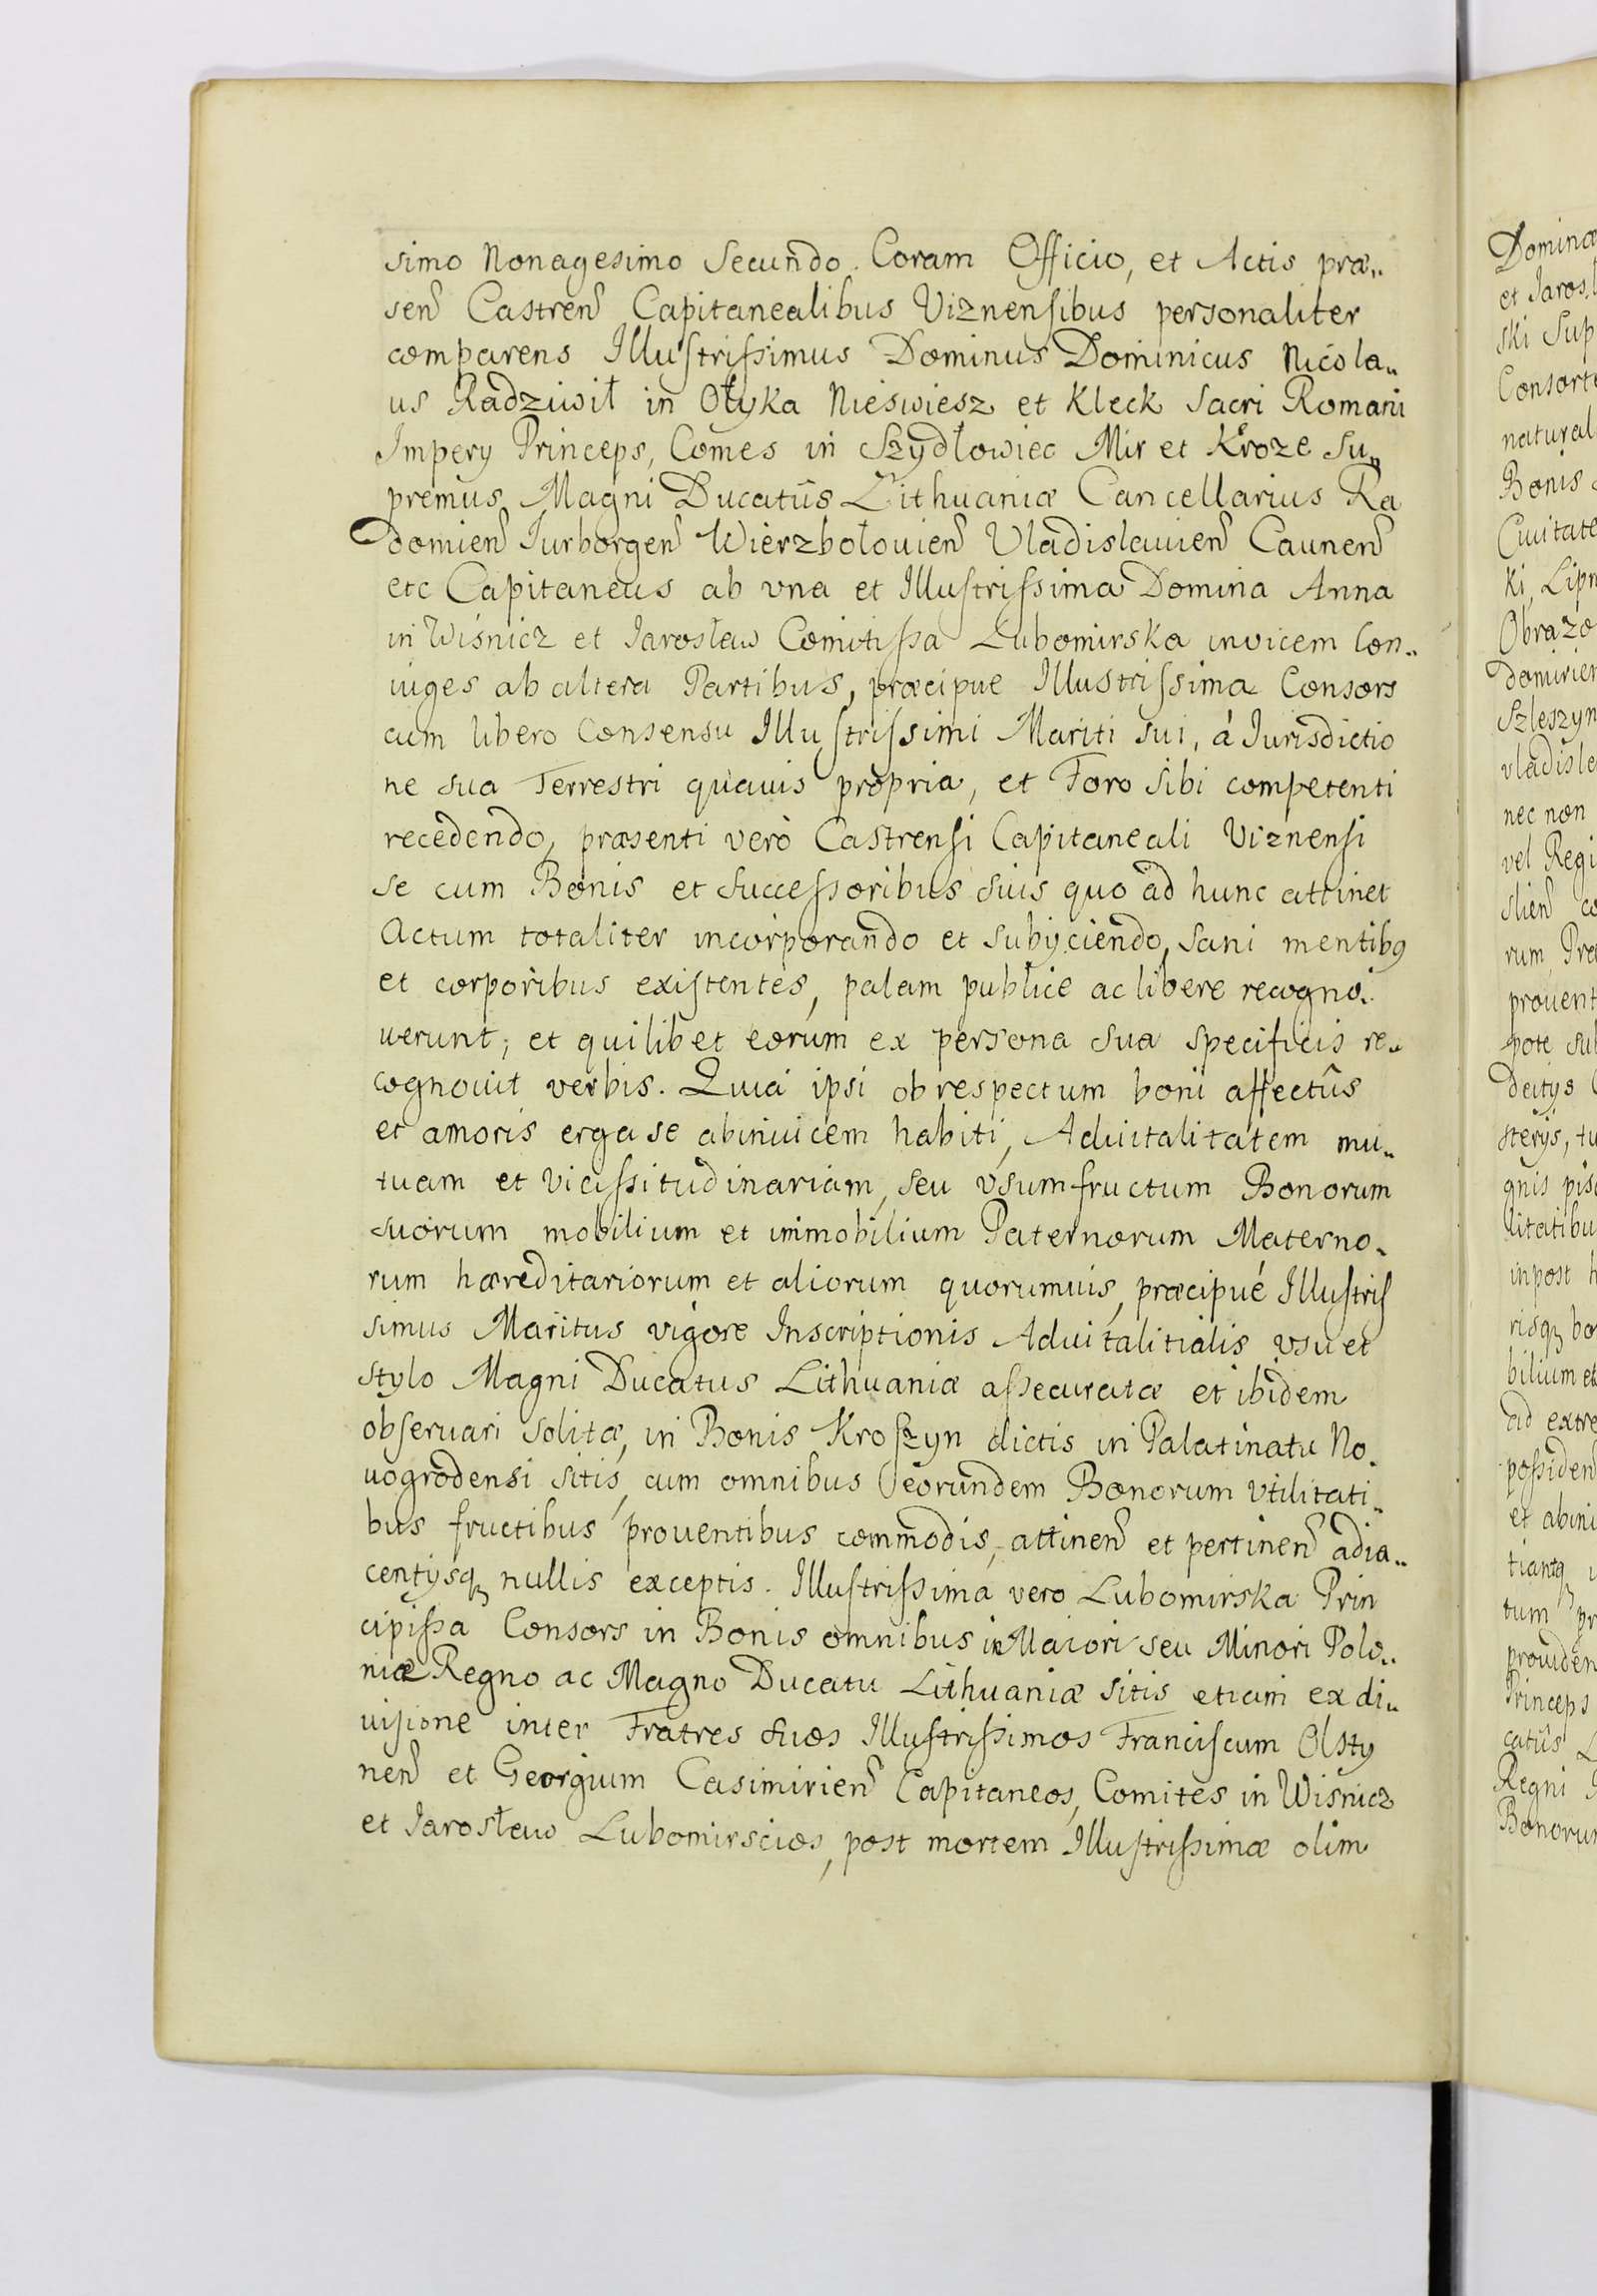 simo Nonagesimo Secundo. Coram Officio, et Actis præ„
sen͂ Castren͂ Capitanealibus Viznensibus personaliter
comparens Illustrissimus Dominus Dominicus Nicola„
us Radziwił in Ołyka Nieświesz et Kleck Sacri Romani
Impery Princeps, Comes in Szydłowiec Mir et Kroze Su„
premus Magni Ducatûs Lithuaniæ Cancellarius Ra
domien͂ Iurborgen͂ Wierzbołouien͂ Vladislauien͂ Caunen͂
etc Capitaneus ab vna et Illustrissima Domina Anna
in Wiśnicz et Jarosław Comitissa Lubomirska invicem Con„
iuges ab altera Partibus, præcipue Illustrissima Consors
cum libero Consensu Illustrissimi Mariti sui, á Iurisdictio
ne sua Terrestri quauis propria, et Foro sibi competenti
recedendo, præsenti verò Castrensi Capitaneali Viznensi
se cum Bonis et Successoribus suis quo ad hunc attinet
Actum totaliter incorporando et subyciendo, sani mentibꝯ
et corporibus existentes, palam publice ac libere recogno„
uerunt, et quilibet eorum ex persona sua specificis re„
cognouit verbis. Quia ipsi ob respectum boni affectûs
et amoris erga se abinuicem habiti, Aduitalitatem mu„
tuam et vicissitudinariam, seu vsumfructum Bonorum
suorum mobilium et immobilium Paternorum Materno„
rum hæreditariorum et aliorum quorumuis, præcipué Illustris
simus Maritus vigore Inscriptionis Aduitalitialis vsu et
stylo Magni Ducatus Lithuaniæ assecuratæ et ibidem
obseruari solitæ, in Bonis Kroszyn dictis in Palatinatu No„
uogrodensi sitis, cum omnibus eorundem Bonorum vtilitati„
bus fructibus prouentibus commodis, attinen͂ et pertinen͂ adia„
centysqꝫ nullis exceptis. Illustrissima vero Lubomirska Prin
cipissa Consors in Bonis omnibus in Maiori seu Minori Polo„
niæ Regno ac Magno Ducatu Lithuaniæ sitis etiam ex di„
uisione inter Fratres suos Illustrissimos Franciscum Olszty
nen͂ et Georgium Casimirien͂ Capitaneos, Comites in Wiśnicz
et Jarosław Lubomirscios, post mortem Illustrissimæ olim
Domina
et Jaros
ski Sup
Consort
natural
Bonis
Ciuitate
ki, Lipn
Obrazo
domirien
Szleszyn
vladisla
nec non
vel Regi
slien͂ co
rum, Præ
prouent
pote sub
Deitys
sterys, tu
gnis pisc
litatibu
inpost h
risqꝫ bo
bilium et
ad extre
possiden͂
et abini
tiantqꝫ
tum pr
prouiden
Princeps
catûs L
Regni
Bonorum